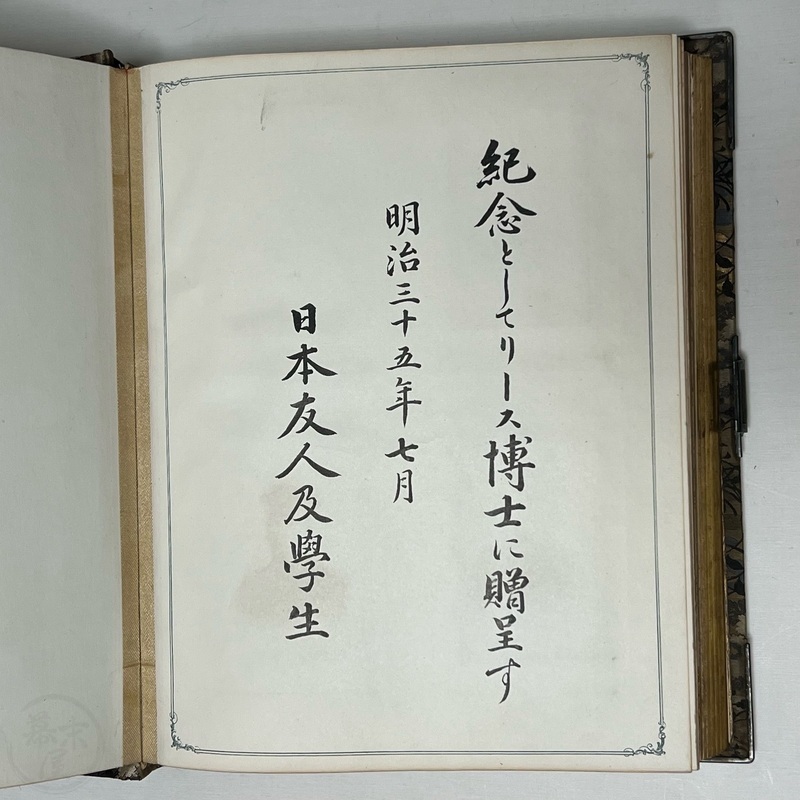 紀念としてリース博士に贈呈す
明治三十五年七月
日本友人及學生